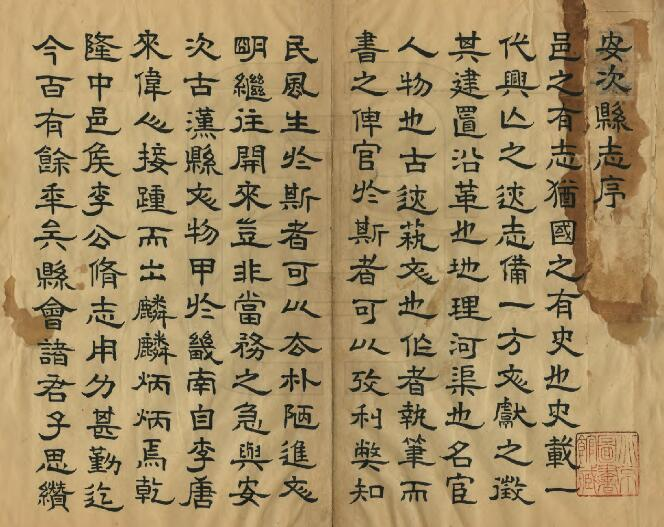 安次縣志序
邑之有志猶國之有史也史載一
代興亾之迹志備一方文獻之徵
其建置沿革也地理河渠也名宦
人物也古迹蓺文也作者執筆而
書之俾官於斯者可以攷利弊知
民風生於斯者可以去朴陋進文
明繼往開來豈非當務之急與安
次古漢縣文物甲於畿南自李唐
來偉人接踵而出麟麟炳炳焉乾
隆中邑侯李公脩志用力甚勤迄
今百有餘年矣縣會諸君子思纘
北京圖書館藏